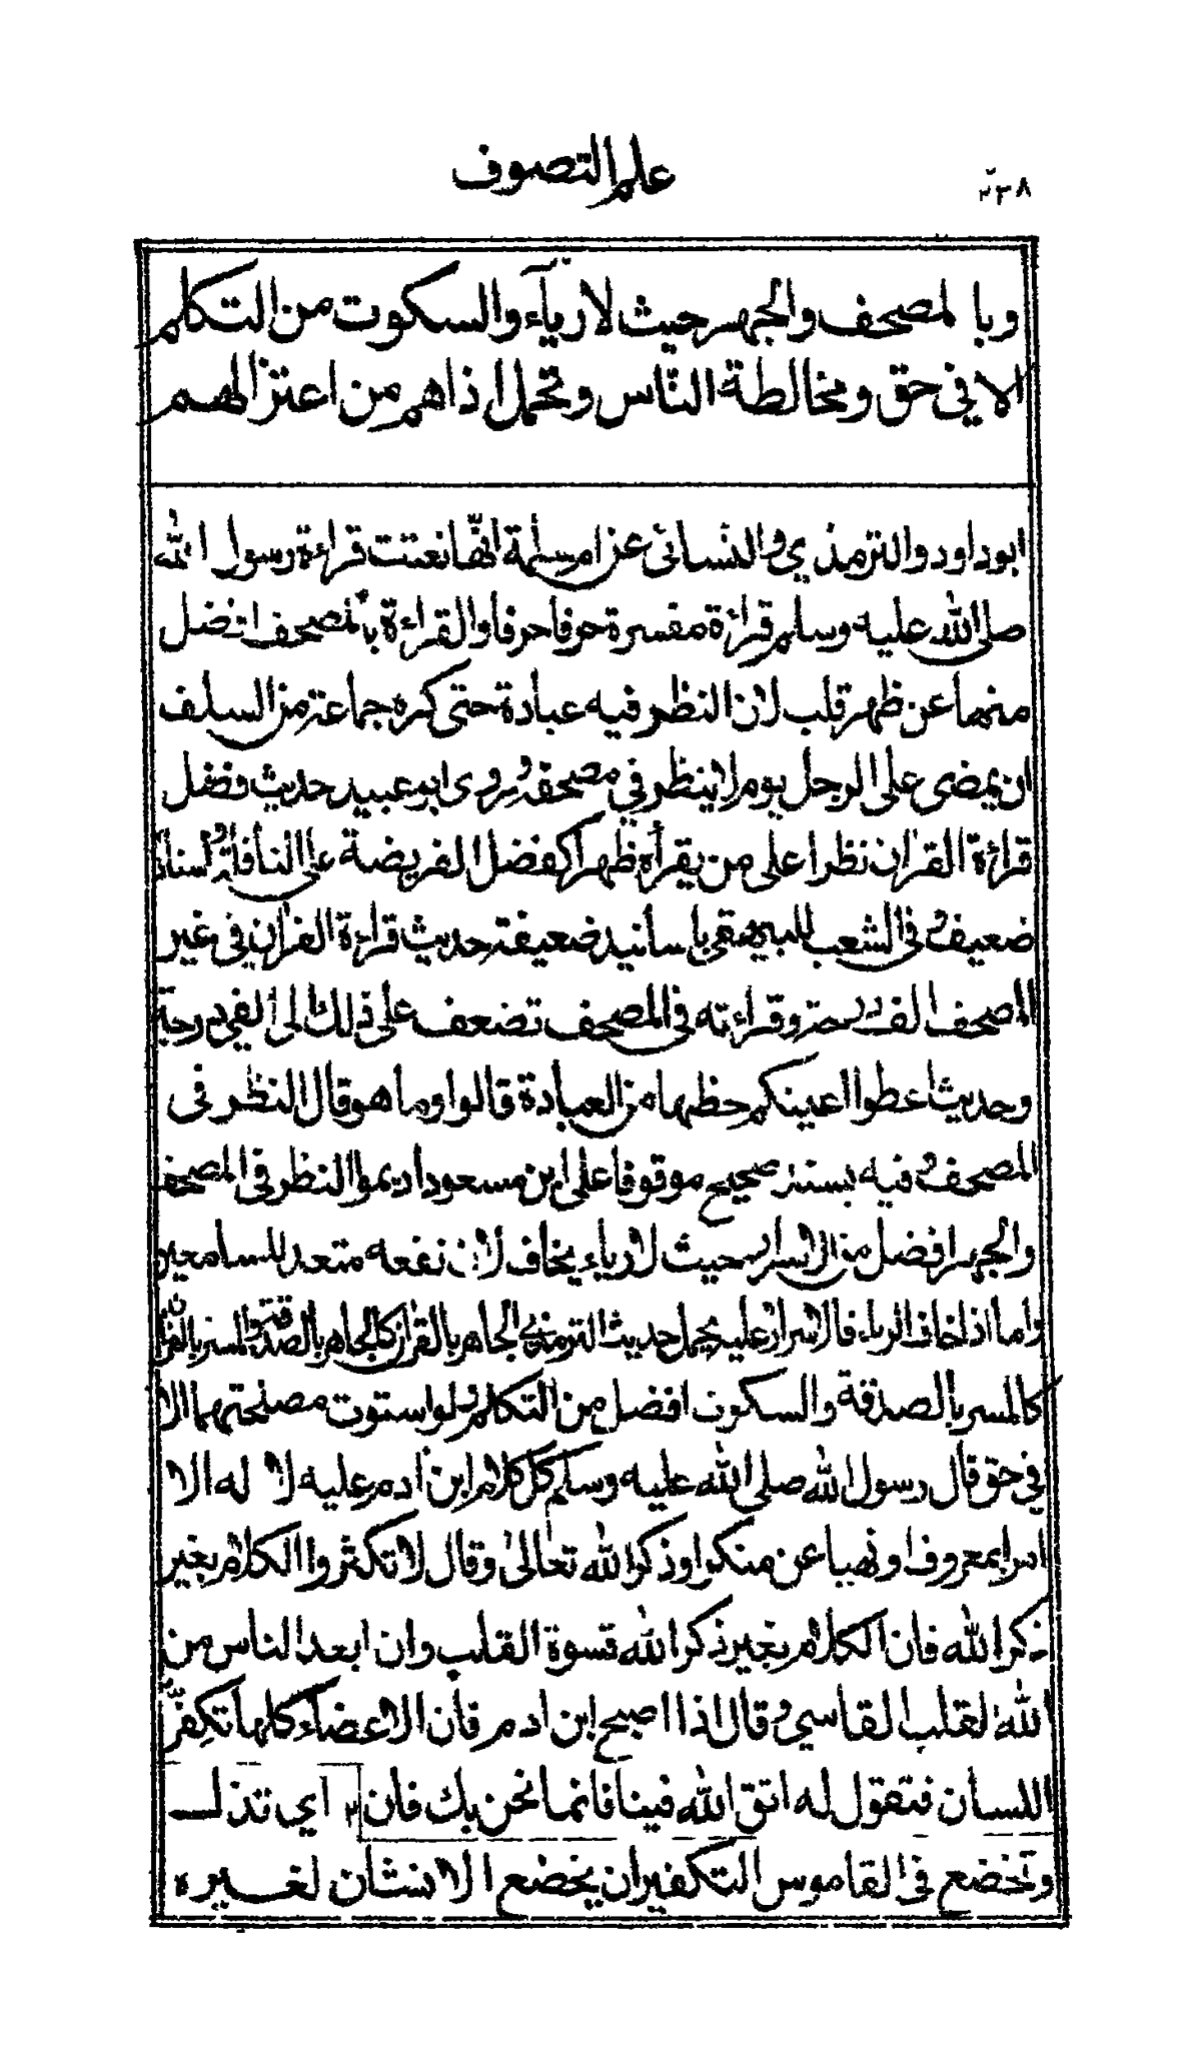 ٢٣٨
علم التصوف
وبالمصحف والجهر حيث لا رياء والسكوت من التكلم
الا في حق ومخالطة الناس وتحمل اذاهم من اعتزالهم
ابو داود والترمذي والنسائى عن ام سلمة انها نعتت قراءة رسول الله
صلى الله عليه وسلم قراءة مفسرة حرفا حرفا والقراءة بالمصحف افضل
منها عن ظهر قلب لان النظر فيه عبادة حتى كره جماعة من السلف
ان يمضى على الرجل يوم لا ينظر في مصحفه وروى ابو عبيد حديث فضل
قراءة القران نظرا على من يقرأه ظهرا كفضل الفريضة على النافلة واسناده
ضعيف وفى الشعب للبيهقى باسانيد ضعيفة حديث قراءة القران فى غير
المصحف الف درجة وقراءته فى المصحف تضعف على ذلك الى الفى درجة
وحديث اعطوا اعينكم حظها من العبادة قالوا وما هو قال النظر فى
المصحف وفيه بسند صحيح موقوفا على ابن مسعود اديموا النظر فى المصحف
والجهر افضل من الاسرار حيث لا رياء يخاف لان نفعه متعد للسامعين
واما اذا خاف الرياء فالاسرار عليه يحمل حديث الترمذي الجاهر بالقران كالجاهر بالصدقة والمسر بالقران
كالمسر بالصدقة والسكوت افضل من التكلم ولو استوت مصلحتهما الا
في حق قال رسول الله صلى الله عليه وسلم كل كلام ابن ادم عليه لا له الا
امرا بمعروف او نهيا عن منكر او ذكر الله تعالى وقال لا تكثروا الكلام بغير
ذكر الله فان الكلام بغير ذكر الله قسوة القلب وان ابعد الناس من
الله القلب القاسي وقال اذا اصبح ابن ادم فان الاعضاء كلها تكفر
اللسان فتقول له اتق الله فينا فانما نحن بك فان ٣ اي تذل
وتخضع فى القاموس التكفير ان يخضع الانسان لغيره